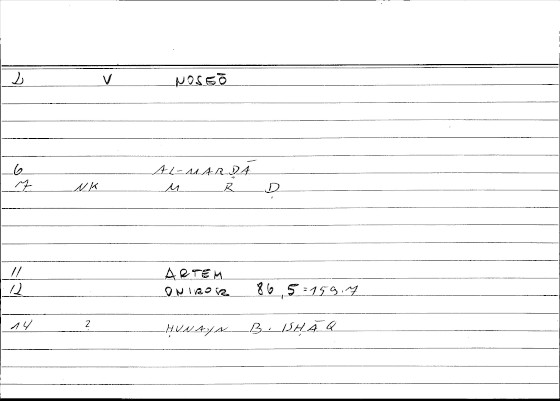 2 V NOSEŌ
6 AL-MARḌĀ
7 NK M Ṛ Ḍ
11 ARTEM
12 ONIROCR 86,5=159.7
14 2 ḤUNAYN B. ISḤĀQ